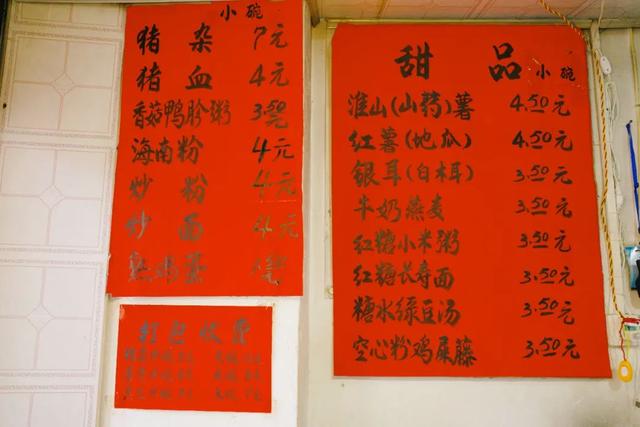 小碗
猪杂 7元
猪血 4元
香菇鸭肾粥 3.50元
海南粉 4元
炒粉 4元
炒面 4元
熟鸡蛋
打包收费
甜品 小碗
淮山(山药)薯 4.50元
红薯(地瓜) 4.50元
银耳(白木耳) 3.50元
牛奶燕麦 3.50元
红糖小米粥 3.50元
红糖长寿面 3.50元
糖水绿豆汤 3.50元
空心粉鸡屎藤 3.50元